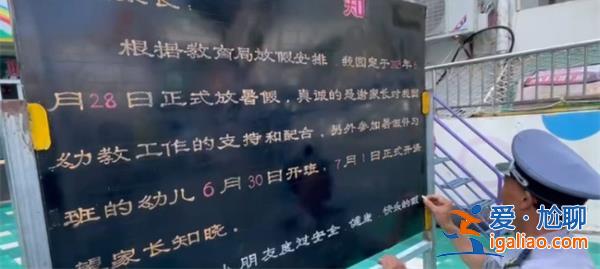 家长：
知
根据教育局放假安排，我园定于22年6
月28日正式放暑假，真诚的感谢家长对我园
幼教工作的支持和配合，另外参加暑假补习
班的幼儿6月30日开班，7月1日正式开课
望家长知晓．
小朋友度过安全、健康、快乐的假
爱·尬聊
igaliao.com